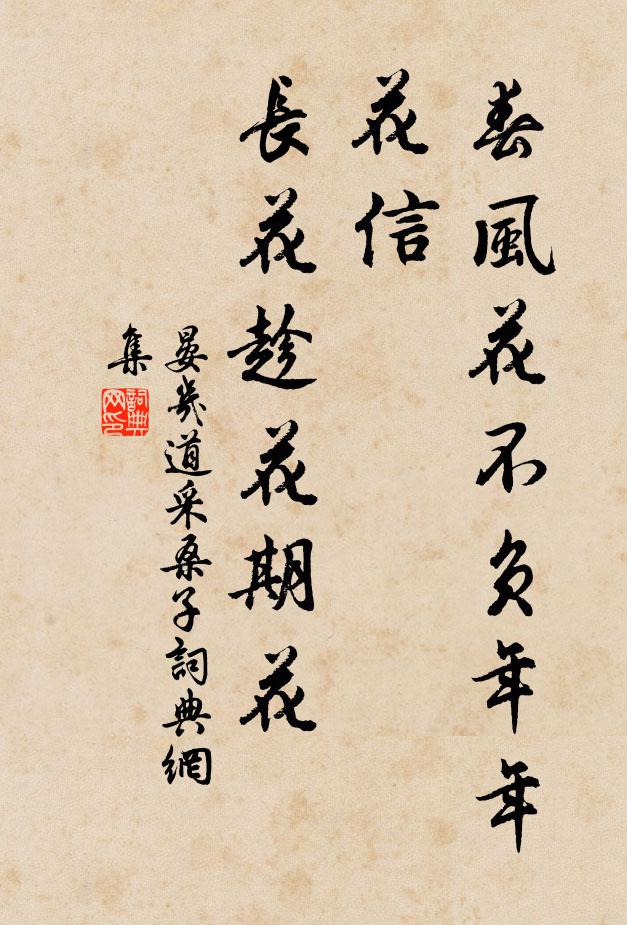 春風花不負年年
花信
長花趁花期花
晏幾道采桑子詞典網
集
詞典网印